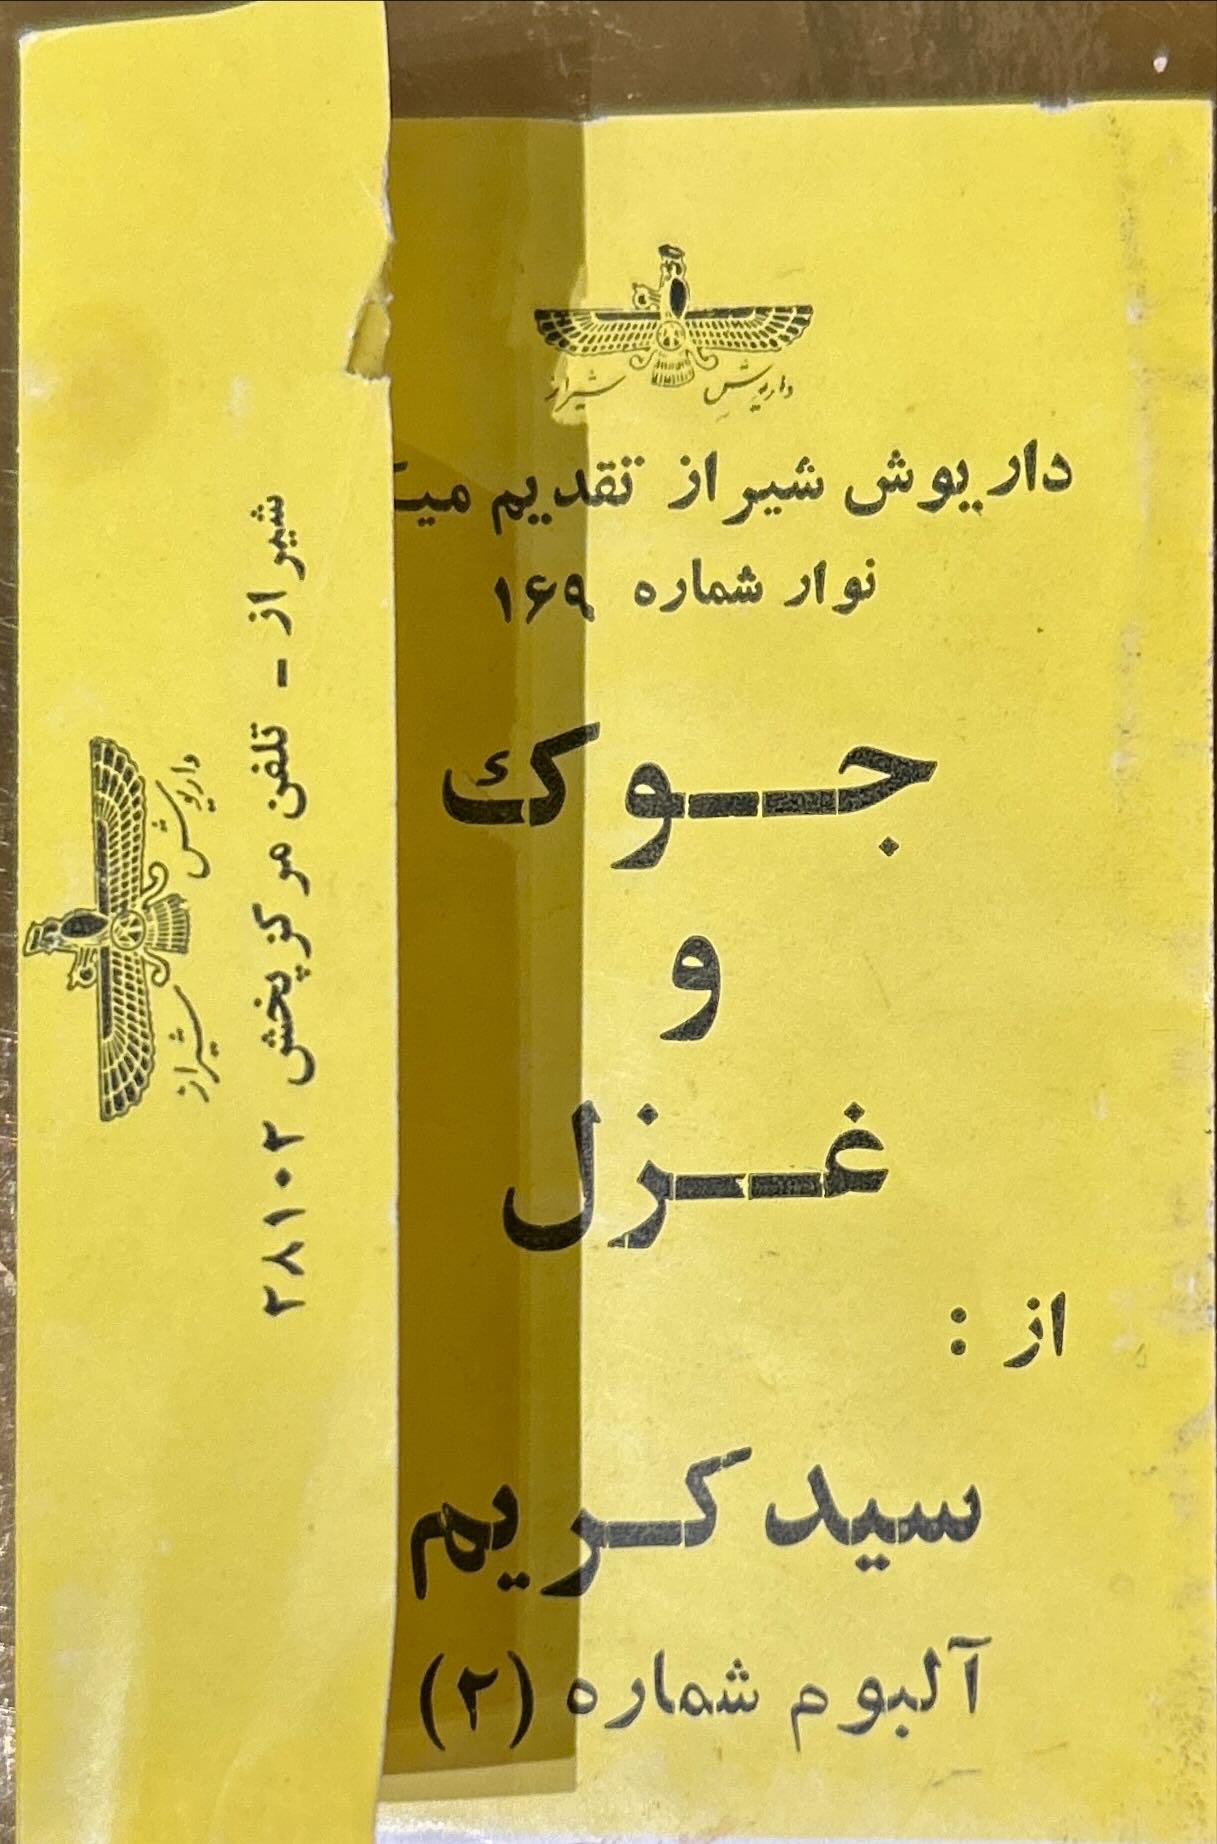 داریوش شیراز
داریوش شیراز تقدیم
نوار شماره ۱۶۹
جوك
و
غزل
از :
سید کریم
آلبوم شماره (۲)
شیراز - تلفن مرکز پخش ۲۸۱۰۲
داریوش شیراز